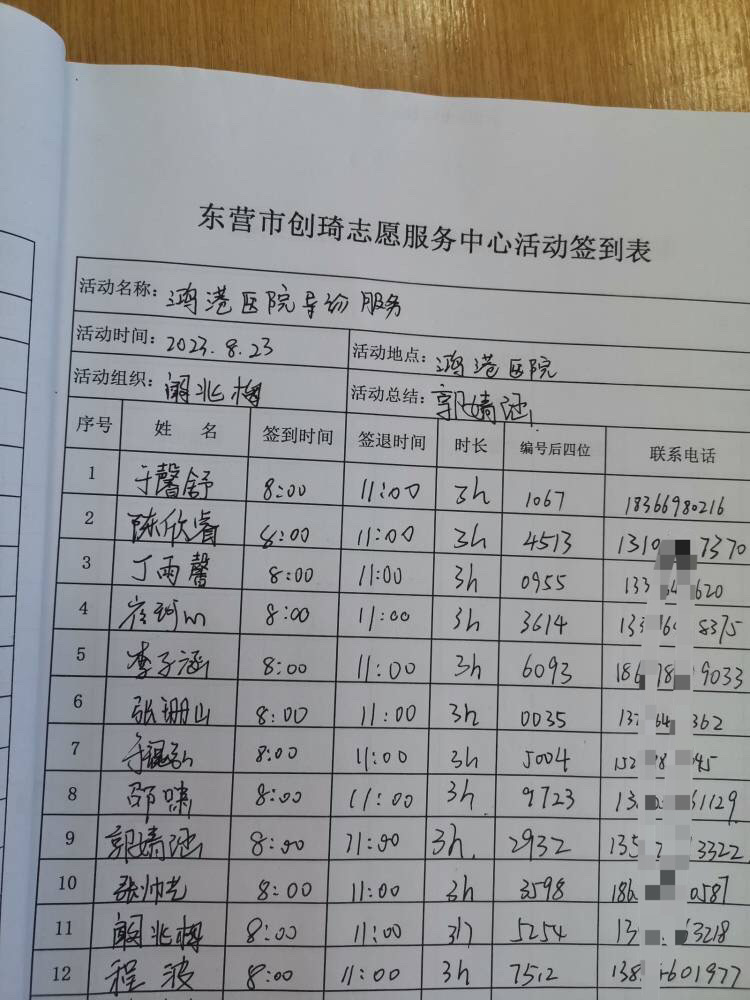 东营市创琦志愿服务中心活动签到表
活动名称: 鸿港医院导诊服务
活动时间: 2023.8.23 活动地点: 鸿港医院
活动组织: 阚兆梅 活动总结: 郭婧涵
序号 姓名 签到时间 签退时间 时长 编号后四位 联系电话
1 于馨舒 8:00 11:00 3h 1067 18366980216
2 陈欣睿 8:00 11:00 3h 4513 1310 7370
3 丁雨馨 8:00 11:00 3h 0955 133 620
4 8:00 11:00 3h 3614 13 8375
5 李子涵 8:00 11:00 3h 6093 186 78 9033
6 张珊山 8:00 11:00 3h 0035 13 64 362
7 8:00 11:00 3h 5004 152 8 45
8 邵啸 8:00 11:00 3h 9723 13 1129
9 郭婧涵 8:00 11:00 3h. 2932 135 3322
10 张帅 8:00 11:00 3h 3598 186 0587
11 阚兆梅 8:00 11:00 3h 5254 13 63218
12 程波 8:00 11:00 3h 7512 138 601977